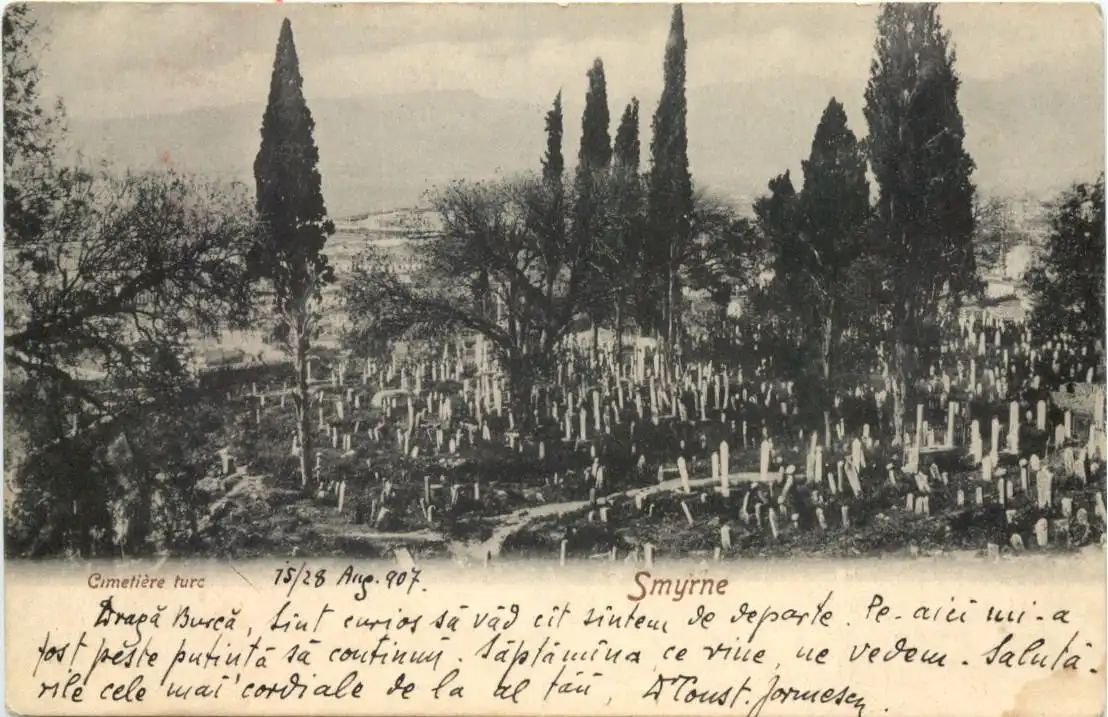 Cimetière turc 15/28 Aug. 907. Smyrne
Dragă Burcă, Sint curios să văd cît sîntem de departe. Pe-aici mi-a
fost peste putință să continuu. Săptămîna ce vine, ne vedem. Salută-
rile cele mai cordiale de la al tău, Const.